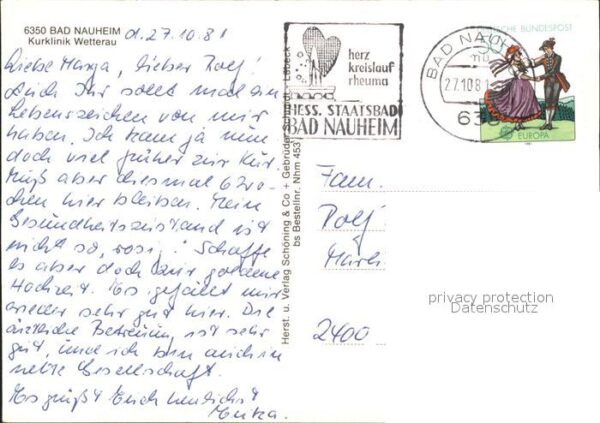 6350 BAD NAUHEIM
Kurklinik Wetterau
d. 27.10.81
Liebe Marga, lieber Rolf!
Auch Ihr sollt mal ein
Lebenszeichen von mir
haben. Ich kam ja nun
doch viel früher zur Kur.
Muß aber diesmal 6 Wo-
chen hier bleiben. Mein
Gesundheitszustand ist
nicht so "rosi". Schaffe
es aber doch zur goldene
Hochzeit. Es gefällt mir
wieder sehr gut hier. Die
ärztliche Betreuung ist sehr
gut, und ich bin auch in
nette Gesellschaft.
Es grüßt Euch herzlichst
Herst. u. Verlag Schöning & Co + Gebrüder Schmidt Lübeck
bs Bestellnr. Nhm 453
herz
kreislauf
rheuma
HESS. STAATSBAD
BAD NAUHEIM
BAD NAUH
27.10.81
63
DEUTSCHE BUNDESPOST
EUROPA
Fam.
Rolf
2400
privacy protection
Datenschutz